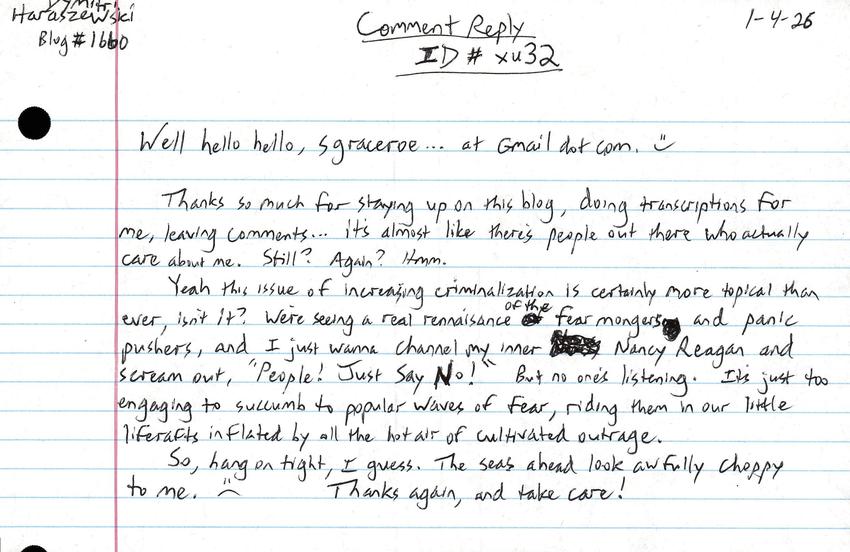 Dymitri
Haraszewski
Blog #1660
Comment Reply
ID # xu32
1-4-26
Well hello hello, sgraceroe... at Gmail dot com. :)
Thanks so much for staying up on this blog, doing transcriptions for
me, leaving comments... it's almost like there's people out there who actually
care about me. Still? Again? Hmm.
Yeah this issue of increasing criminalization is certainly more topical than
ever, isn't it? We're seeing a real rennaisance of the fear mongers and panic
pushers, and I just wanna channel my inner Nancy Reagan and
scream out, "People! Just Say No!" But no one's listening. It's just too
engaging to succumb to popular waves of fear, riding them in our little
liferafts inflated by all the hot air of cultivated outrage.
So, hang on tight, I guess. The seas ahead look awfully choppy
to me. :( Thanks again, and take care!